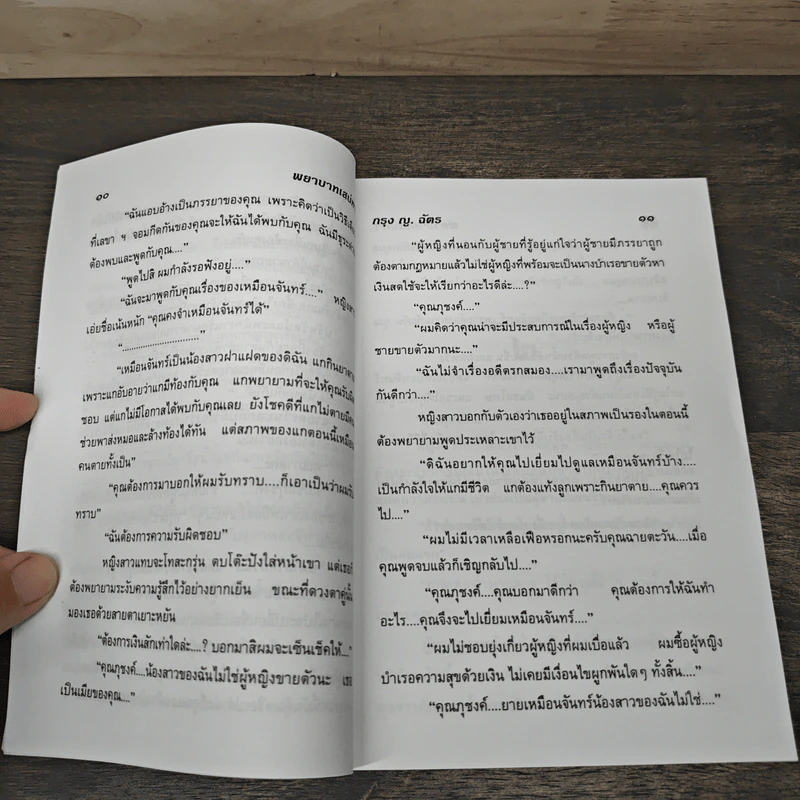 ๑๐
พยาบาทเสน่ห
“ฉันแอบอ้างเป็นภรรยาของคุณ เพราะคิดว่าเป็นวิธีเดีย
ที่เลขา ฯ จอมกีดกันของคุณจะให้ฉันได้พบกับคุณ ฉันมีธุระ
ต้องพบและพูดกับคุณ....”
“พูดไปสิ ผมกำลังรอฟังอยู่....”
“ฉันจะมาพูดกับคุณเรื่องของเหมือนจันทร์....” หญิงสา
เอ่ยชื่อเน้นหนัก “คุณคงจำเหมือนจันทร์ได้”
“..........................”
“เหมือนจันทร์เป็นน้องสาวฝาแฝดของดิฉัน แกกินยาตาย
เพราะแกอับอายว่าแกมีท้องกับคุณ แกพยายามที่จะให้คุณรับผิด
ชอบ แต่แกไม่มีโอกาสได้พบกับคุณเลย ยังโชคดีที่แกไม่ตายมีคน
ช่วยพาส่งหมอและล้างท้องได้ทัน แต่สภาพของแกตอนนี้เหมือน
คนตายทั้งเป็น”
“คุณต้องการมาบอกให้ผมรับทราบ....ก็เอาเป็นว่าผมรับ
ทราบ”
“ฉันต้องการความรับผิดชอบ”
หญิงสาวแทบจะโทสะกรุ่น ตบโต๊ะปังใส่หน้าเขา แต่เธอก็
ต้องพยายามระงับความรู้สึกไว้อย่างยากเย็น ขณะที่ดวงตาคู่นั้น
มองเธอด้วยสายตาเยาะหยัน
“ต้องการเงินสักเท่าใดล่ะ....? บอกมาสิผมจะเซ็นเช็คให้...”
“คุณภุชงค์....น้องสาวของฉันไม่ใช่ผู้หญิงขายตัวนะ เธอ
เป็นเมียของคุณ....”
กรุง ญ. ฉัตร
๑๑
“ผู้หญิงที่นอนกับผู้ชายที่รู้อยู่แก่ใจว่าผู้ชายมีภรรยาถูก
ต้องตามกฎหมายแล้วไม่ใช่ผู้หญิงที่พร้อมจะเป็นนางบำเรอขายตัวหา
เงินสดใช้จะให้เรียกว่าอะไรดีล่ะ....?”
“คุณภุชงค์....”
“ผมคิดว่าคุณน่าจะมีประสบการณ์ในเรื่องผู้หญิง หรือผู้
ชายขายตัวมากนะ....”
“ฉันไม่จำเรื่องอดีตรกสมอง....เรามาพูดถึงเรื่องปัจจุบัน
กันดีกว่า....”
หญิงสาวบอกกับตัวเองว่าเธออยู่ในสภาพเป็นรองในตอนนี้
ต้องพยายามพูดประเหลาะเขาไว้
“ดิฉันอยากให้คุณไปเยี่ยมไปดูแลเหมือนจันทร์บ้าง....
เป็นกำลังใจให้แกมีชีวิต แกต้องแท้งลูกเพราะกินยาตาย....คุณควร
ไป....”
“ผมไม่มีเวลาเหลือเฟือหรอกนะครับคุณฉายตะวัน....เมื่อ
คุณพูดจบแล้วก็เชิญกลับไป....”
“คุณภุชงค์....คุณบอกมาดีกว่า คุณต้องการให้ฉันทำ
อะไร....คุณจึงจะไปเยี่ยมเหมือนจันทร์....”
“ผมไม่ชอบยุ่งเกี่ยวผู้หญิงที่ผมเบื่อแล้ว ผมซื้อผู้หญิง
บำเรอความสุขด้วยเงิน ไม่เคยมีเงื่อนไขผูกพันใดๆ ทั้งสิ้น....”
“คุณภุชงค์....ยายเหมือนจันทร์น้องสาวของฉันไม่ใช่....”